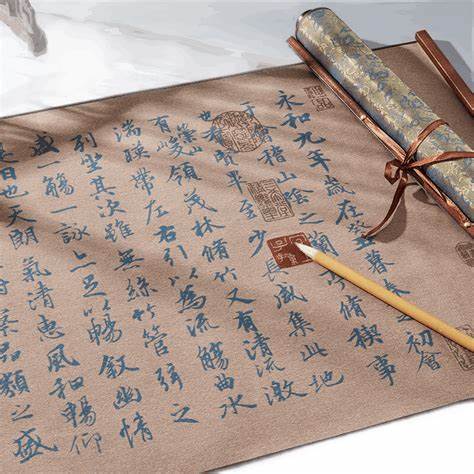 永和九年歲在癸丑暮春之初會
于會稽山陰之蘭亭脩稧事
也羣賢畢至少長咸集此地
有崇山峻領茂林脩竹又有清流激
湍暎帶左右引以為流觴曲水
列坐其次雖無絲竹管弦之
盛一觴一詠亦足以暢敘幽情
是日也天朗氣清惠風和暢仰
察品類之盛